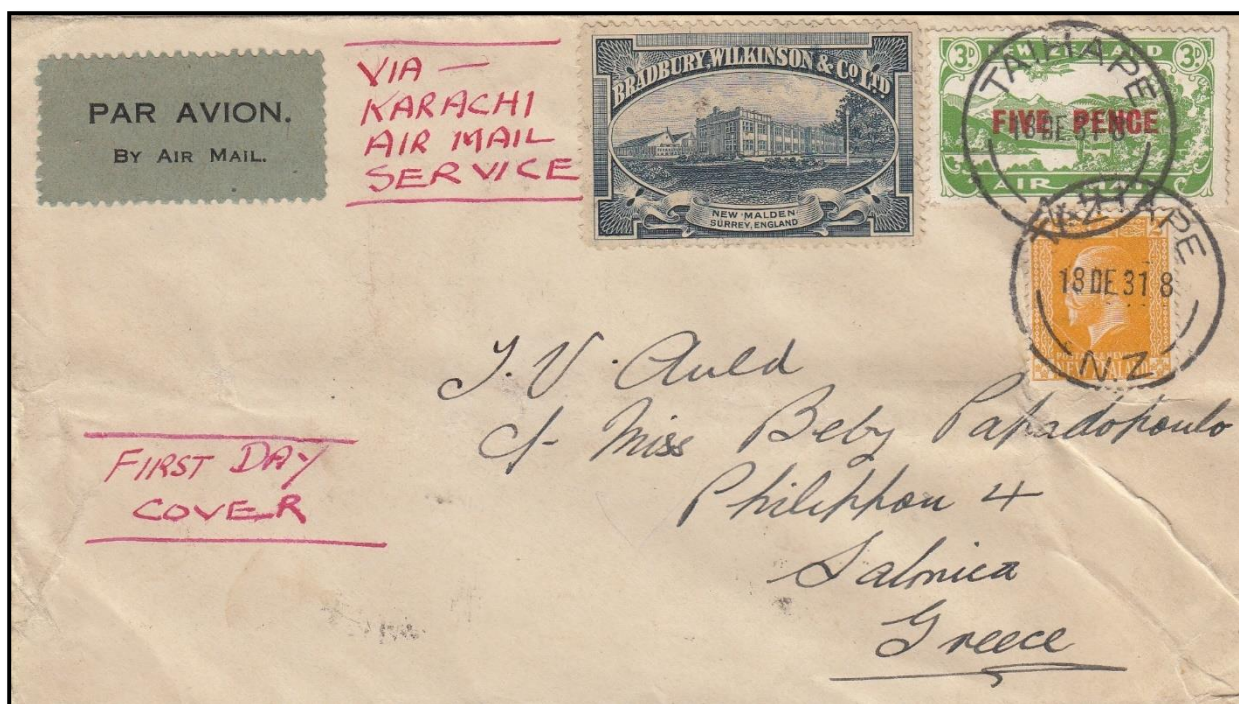 PAR AVION.
BY AIR MAIL.
VIA —
KARACHI
AIR MAIL
SERVICE
BRADBURY, WILKINSON & Co LTD
NEW MALDEN
SURREY, ENGLAND
3D NEW ZEALAND 3D
FIVE PENCE
AIR MAIL
TAIHAPE
TAIHAPE
18 DE 31 8
N.Z
POSTAGE & REVENUE
NEW ZEALAND
J. V. Auld
c/- Miss Beby Papadopoulo
Philippou 4
Salonica
Greece
FIRST DAY
COVER